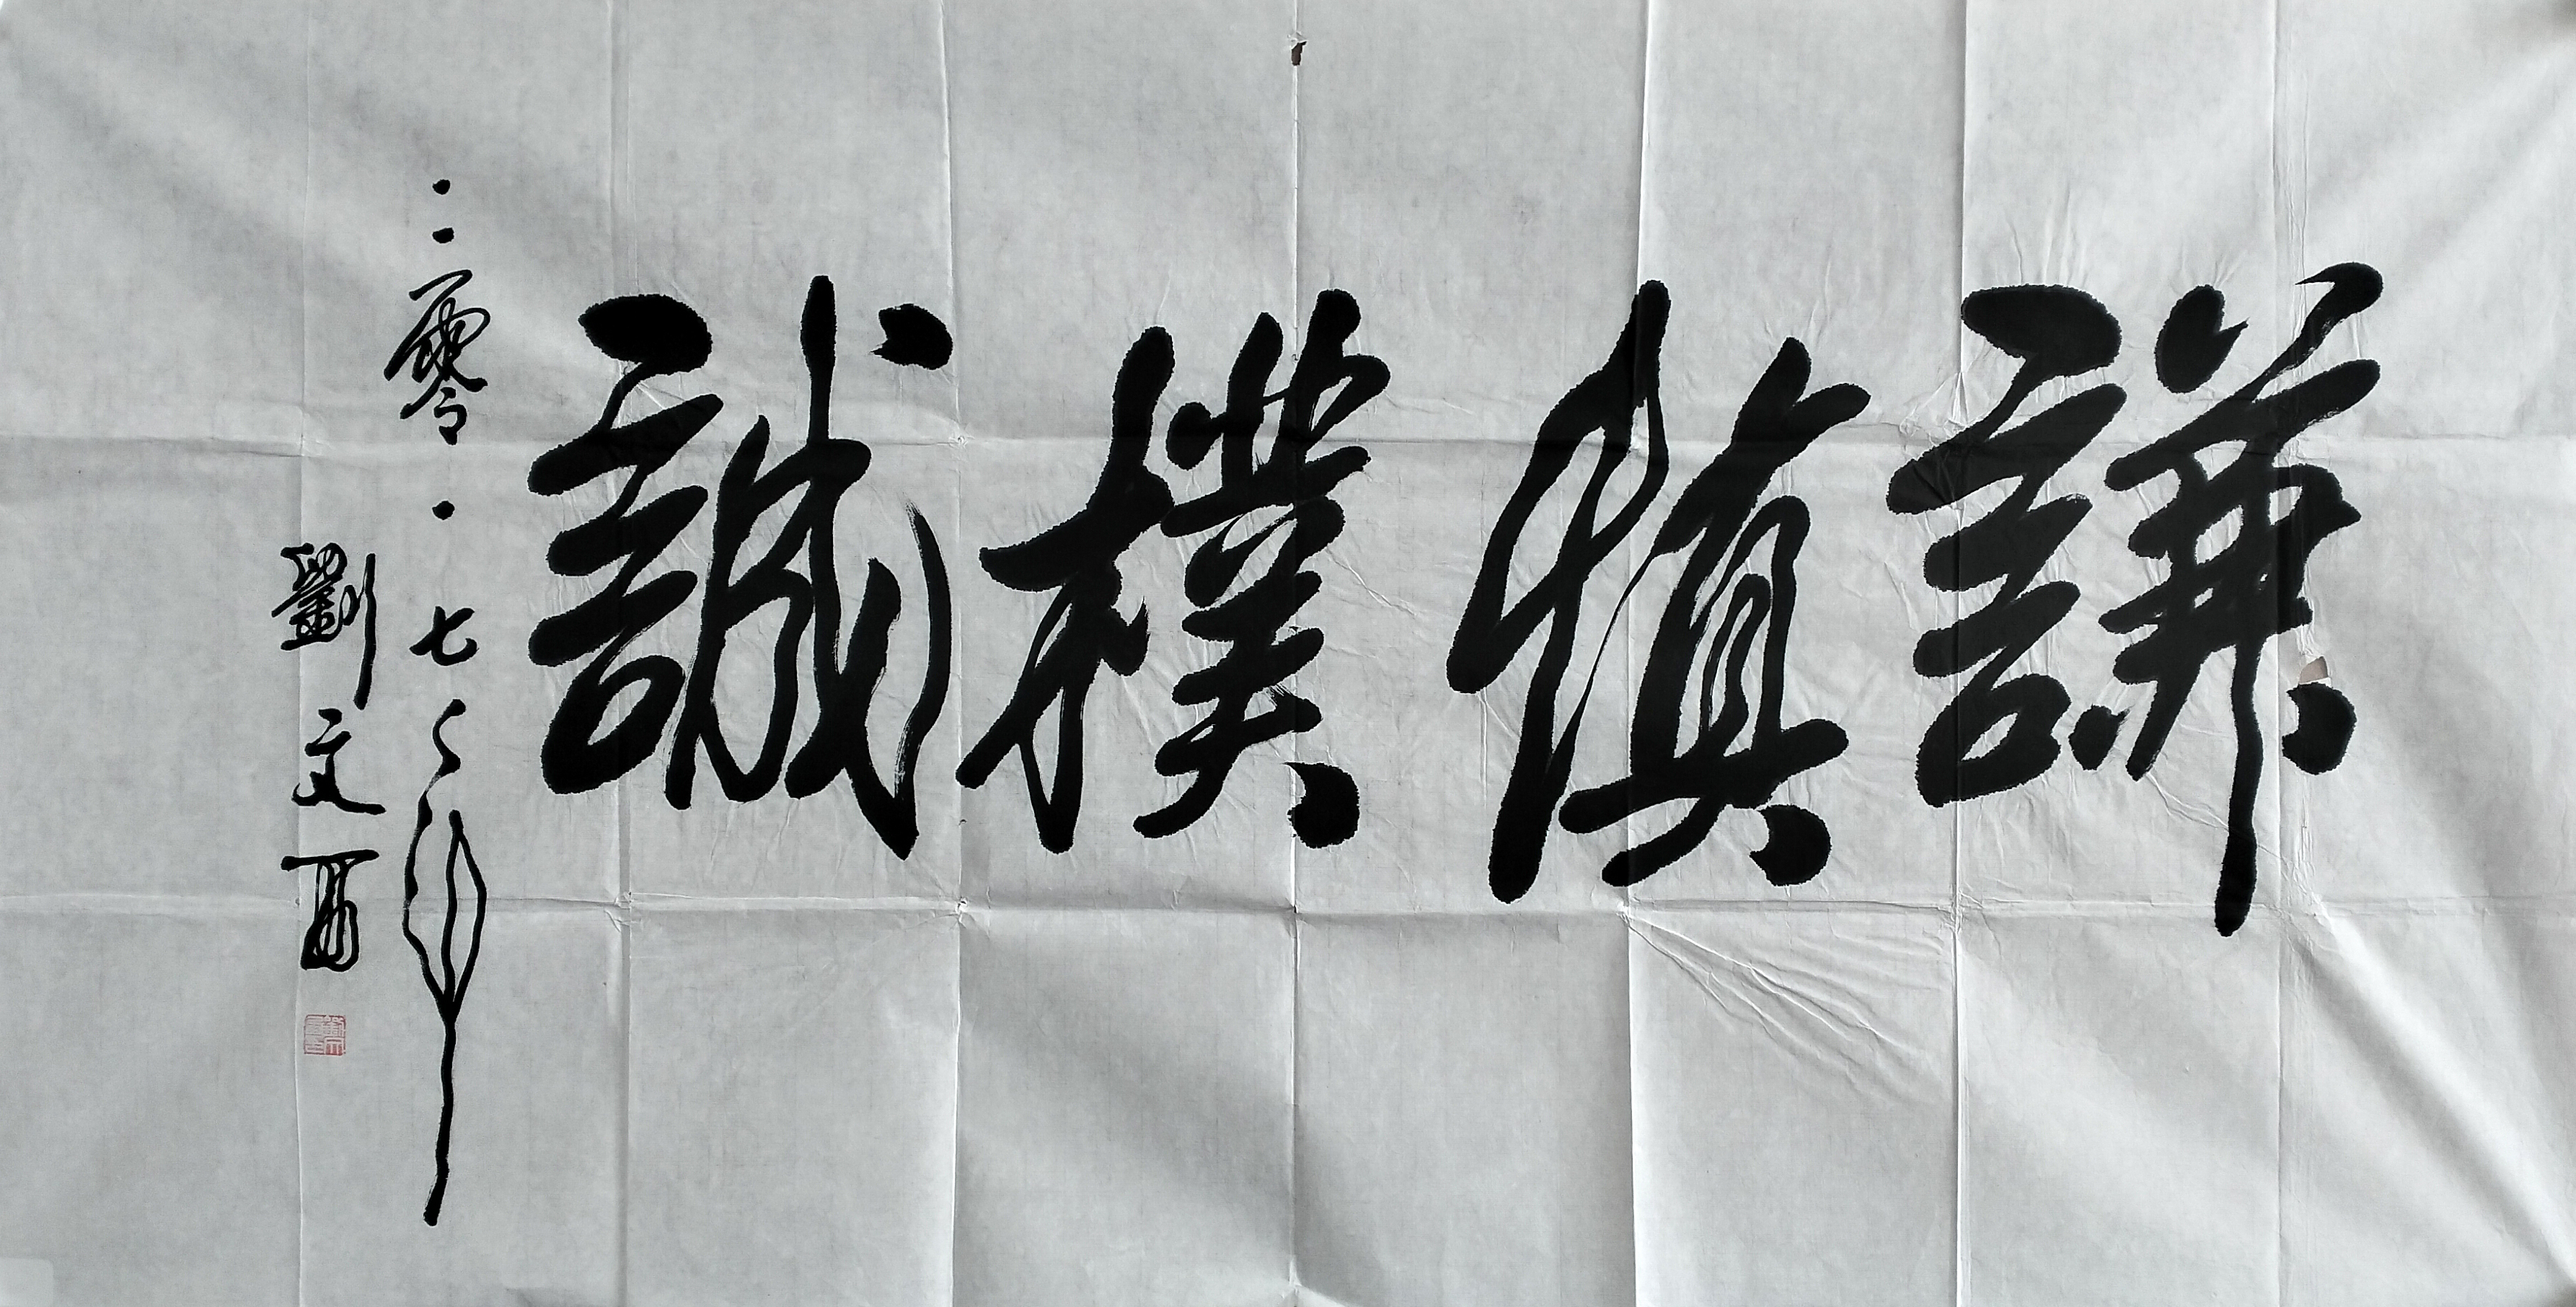 謙慎樸誠
二零·七年
劉文西